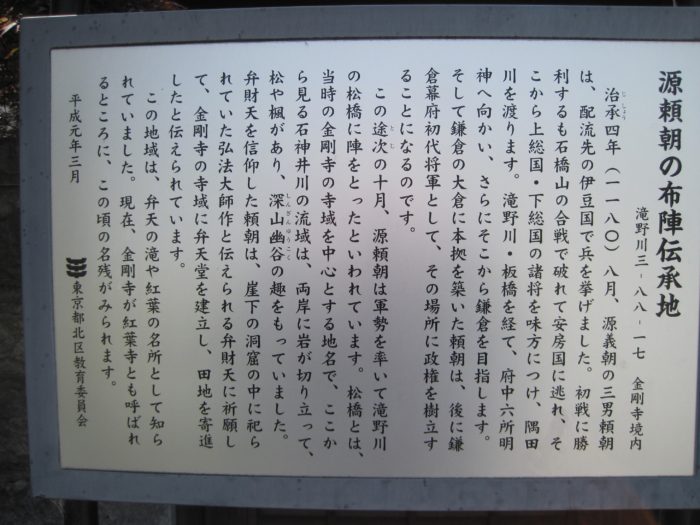 源頼朝の布陣伝承地
滝野川三-八八-一七 金剛寺境内
治承四年(一一八〇)八月、源義朝の三男頼朝
は、配流先の伊豆国で兵を挙げました。初戦に勝
利するも石橋山の合戦で破れて安房国に逃れ、そ
こから上総国・下総国の諸将を味方につけ、隅田
川を渡ります。滝野川・板橋を経て、府中六所明
神へ向かい、さらにそこから鎌倉を目指します。
そして鎌倉の大倉に本拠を築いた頼朝は、後に鎌
倉幕府初代将軍として、その場所に政権を樹立す
ることになるのです。
この途次の十月、源頼朝は軍勢を率いて滝野川
の松橋に陣をとったといわれています。松橋とは、
当時の金剛寺の寺域を中心とする地名で、ここか
ら見る石神井川の流域は、両岸に岩が切り立って、
松や楓があり、深山幽谷の趣をもっていました。
弁財天を信仰した頼朝は、崖下の洞窟の中に祀ら
れていた弘法大師作と伝えられる弁財天に祈願し
て、金剛寺の寺域に弁天堂を建立し、田地を寄進
したと伝えられています。
この地域は、弁天の滝や紅葉の名所として知ら
れていました。現在、金剛寺が紅葉寺とも呼ばれ
るところに、この頃の名残がみられます。
平成元年三月
東京都北区教育委員会